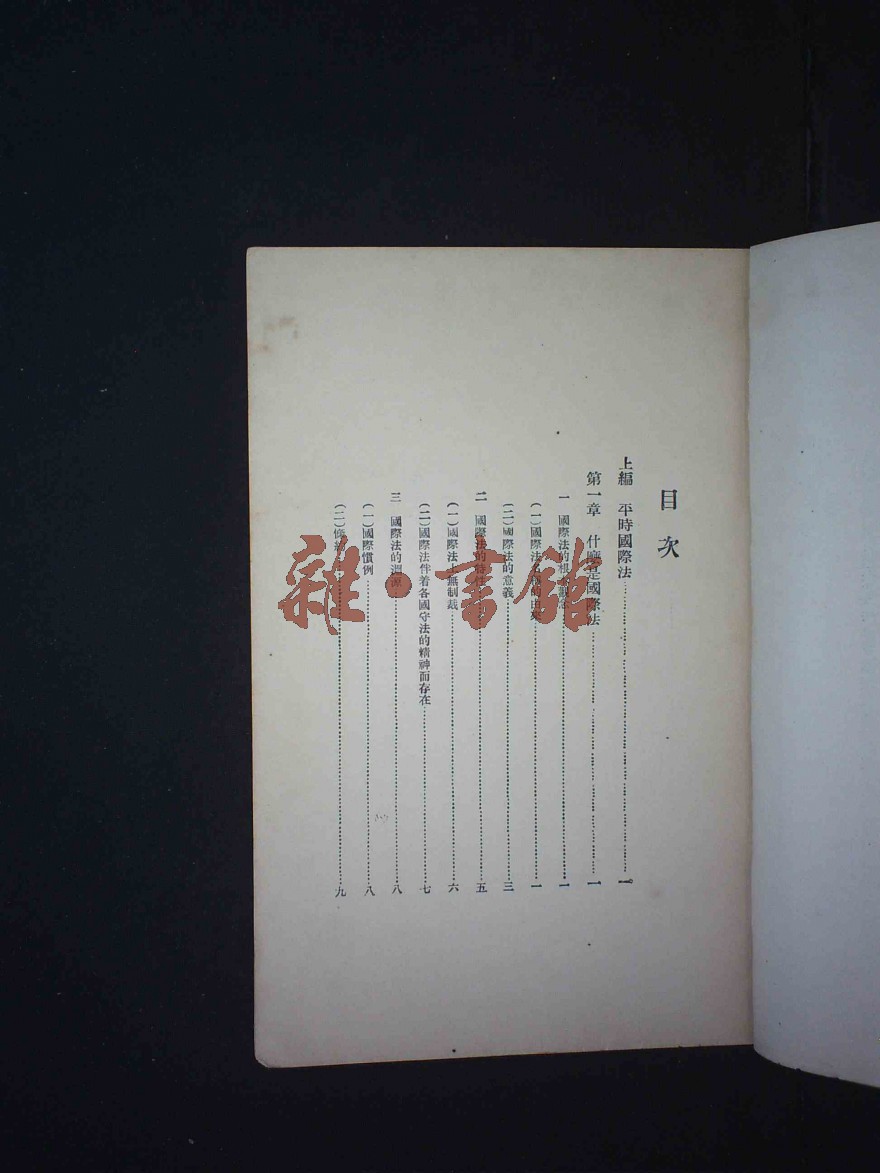 目次
上編　平時國際法……一
第一章　什麼是國際法……一
一　國際法的根本觀念……一
(一)國際法名稱的由來……一
(二)國際法的意義……三
二　國際法的特性……五
(一)國際法上無制裁……六
(二)國際法伴着各國守法的精神而存在……七
三　國際法的淵源……八
(一)國際慣例……八
(二)條約……九
雜·書館